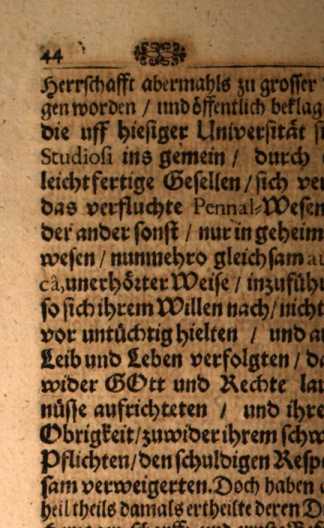 44
Herrschafft abermahls zu grosser
gen worden / und öffentlich beklag
die uff hiesiger Universität
Studiosi ins gemein / durch
leichtfertige Gesellen / sich
das verfluchte Pennal-Wesen
der ander sonst / nur in geheim
wesen / nunmehro gleichsam
câ, unerhörter Weise / inzuführ
so sich ihrem Willen nach / nicht
vor untüchtig hielten / und
Leib und Leben verfolgten /
wider GOtt und Rechte
nüsse auffrichteten / und ihre
Obrigkeit / zuwider ihrem
Pflichten / den schuldigen Resp
sam verweigerten. Doch haben
heil theils damals ertheilte deren